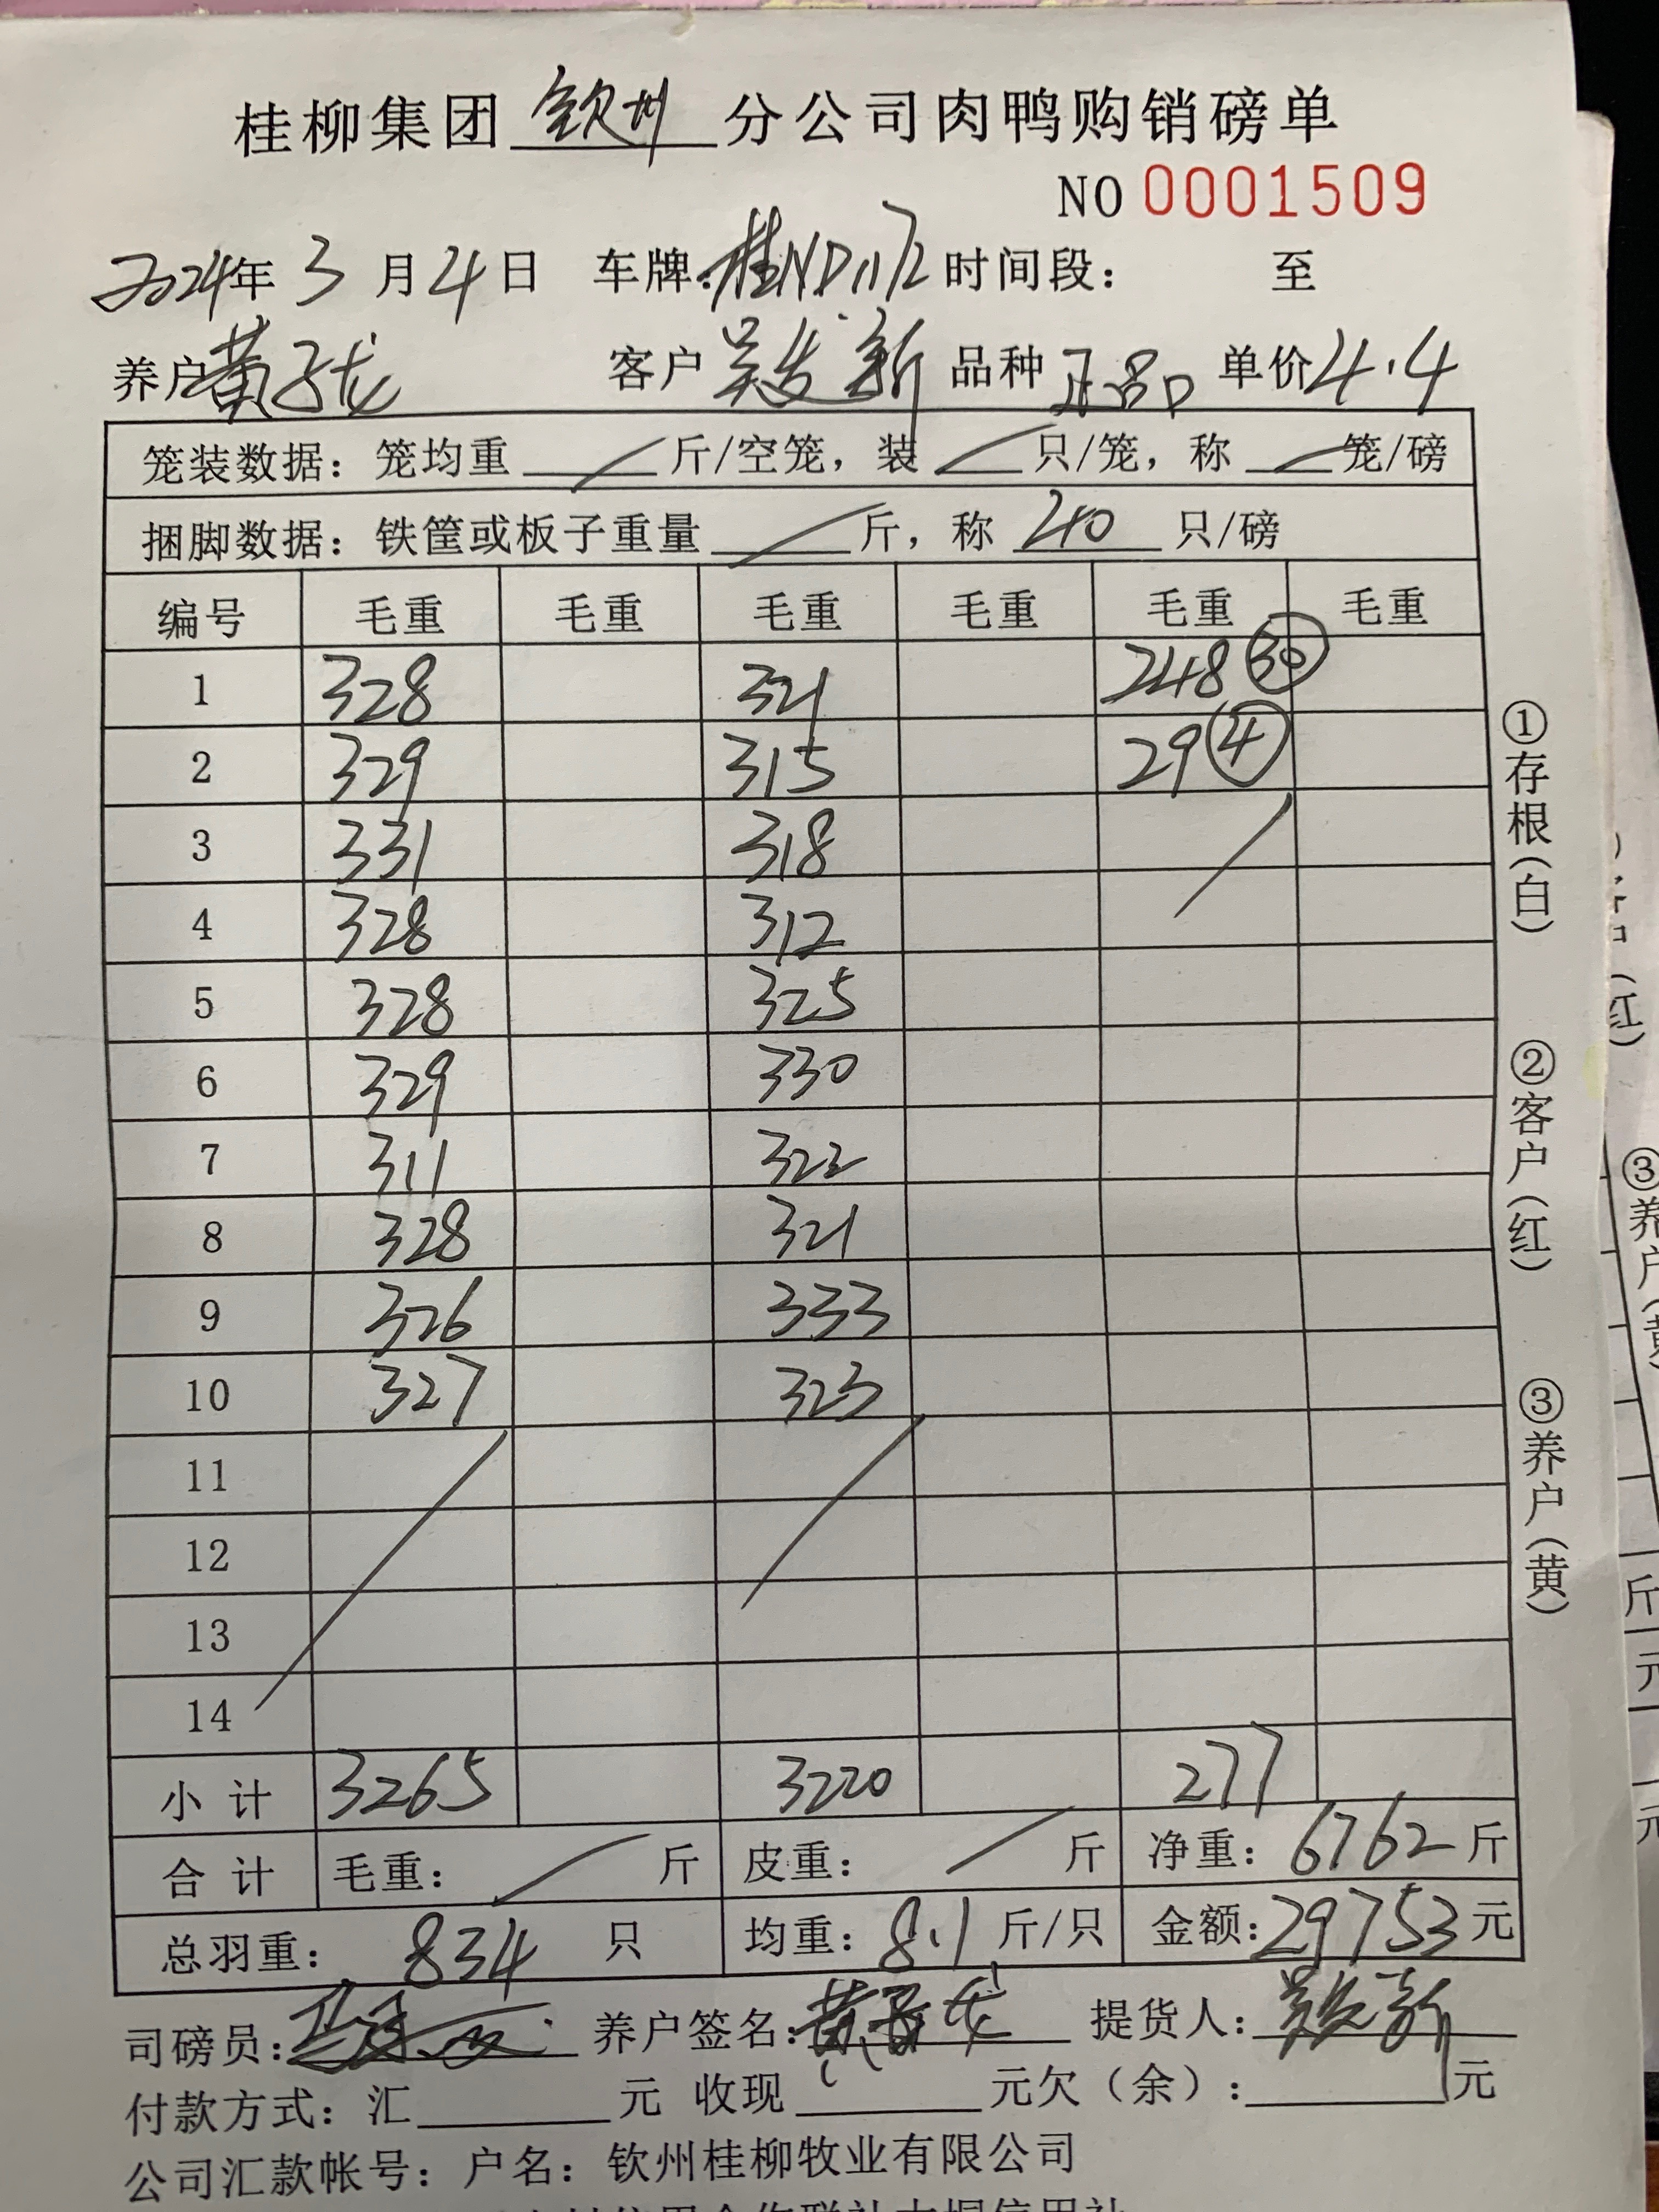 桂柳集团 钦州 分公司肉鸭购销磅单
NO 0001509
2024年 3 月 4 日 车牌: 桂ND1172 时间段: 至
养户 黄子龙 客户 吴发新 品种 正品 单价 4.4
笼装数据: 笼均重 斤/空笼, 装 只/笼, 称 笼/磅
捆脚数据: 铁筐或板子重量 斤, 称 40 只/磅
编号 毛重 毛重 毛重 毛重 毛重 毛重
1 328 321 248 30
2 329 315 29 4
3 331 318
4 328 312
5 328 325
6 329 330
7 311 322
8 328 321
9 326 333
10 327 323
11
12
13
14
小计 3265 3220 277
合计 毛重: 斤 皮重: 斤 净重: 6762 斤
总羽重: 834 只 均重: 8.1 斤/只 金额: 29753 元
司磅员: 养户签名: 黄子龙 提货人: 吴发新
付款方式: 汇 元 收现 元欠(余): 元
公司汇款帐号: 户名: 钦州桂柳牧业有限公司
①存根(白)
②客户(红)
③养户(黄)
(红)
③养户(黄
斤
元
元